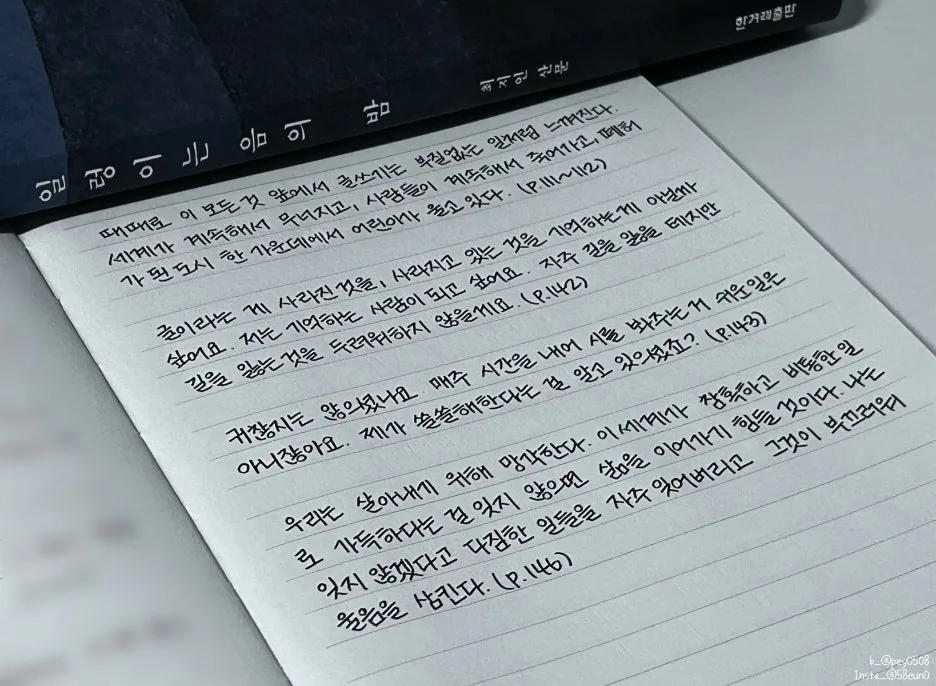 한겨레출판
일렁이는 음의 밤
최지인 산문
때때로 이 모든 것 앞에서 글쓰기는 부질없는 일처럼 느껴진다.
세계가 계속해서 무너지고, 사람들이 계속해서 죽어가고, 폐허
가 된 도시 한 가운데에서 어린아이가 울고 있다. (p.111~112)
글이라는 게 사라진 것을, 사라지고 있는 것을 기억하는 게 아닐까
싶어요. 저는 기억하는 사람이 되고 싶어요. 자주 길을 잃을 테지만
길을 잃는 것을 두려워하지 않을게요. (p.142)
귀찮지는 않으셨나요. 매주 시간을 내어 시를 봐주는 거 쉬운 일은
아니잖아요. 제가 쓸쓸해한다는 걸 알고 있으셨죠? (p.143)
우리는 살아내기 위해 망각한다. 이 세계가 참혹하고 비통한 일
로 가득하다는 걸 잊지 않으면 삶을 이어가기 힘들 것이다. 나는
잊지 않겠다고 다짐한 일들을 자주 잊어버리고 그것이 부끄러워
울음을 삼킨다. (p.146)
k_@pej0508
Insta_@58eun0